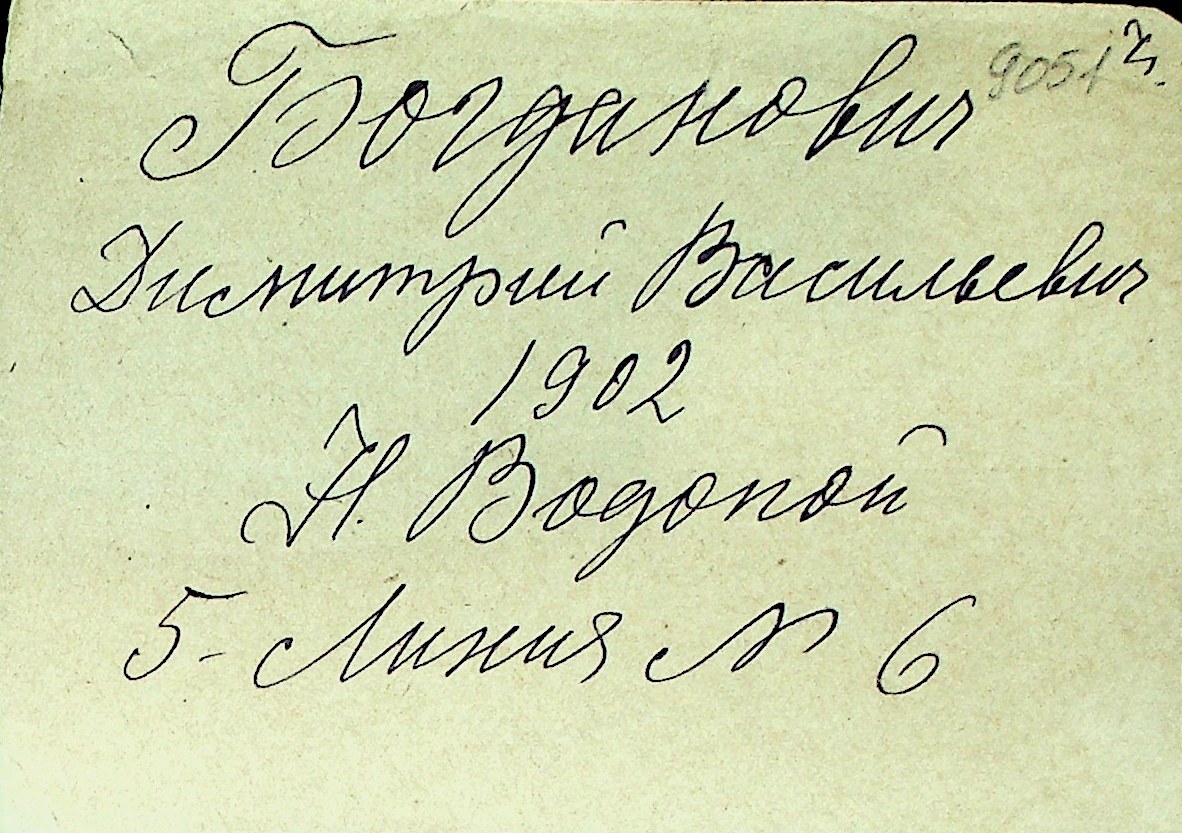 9051
Богданович
Димитрий Васильевич
1902
Н. Водопой
5- Линия № 6